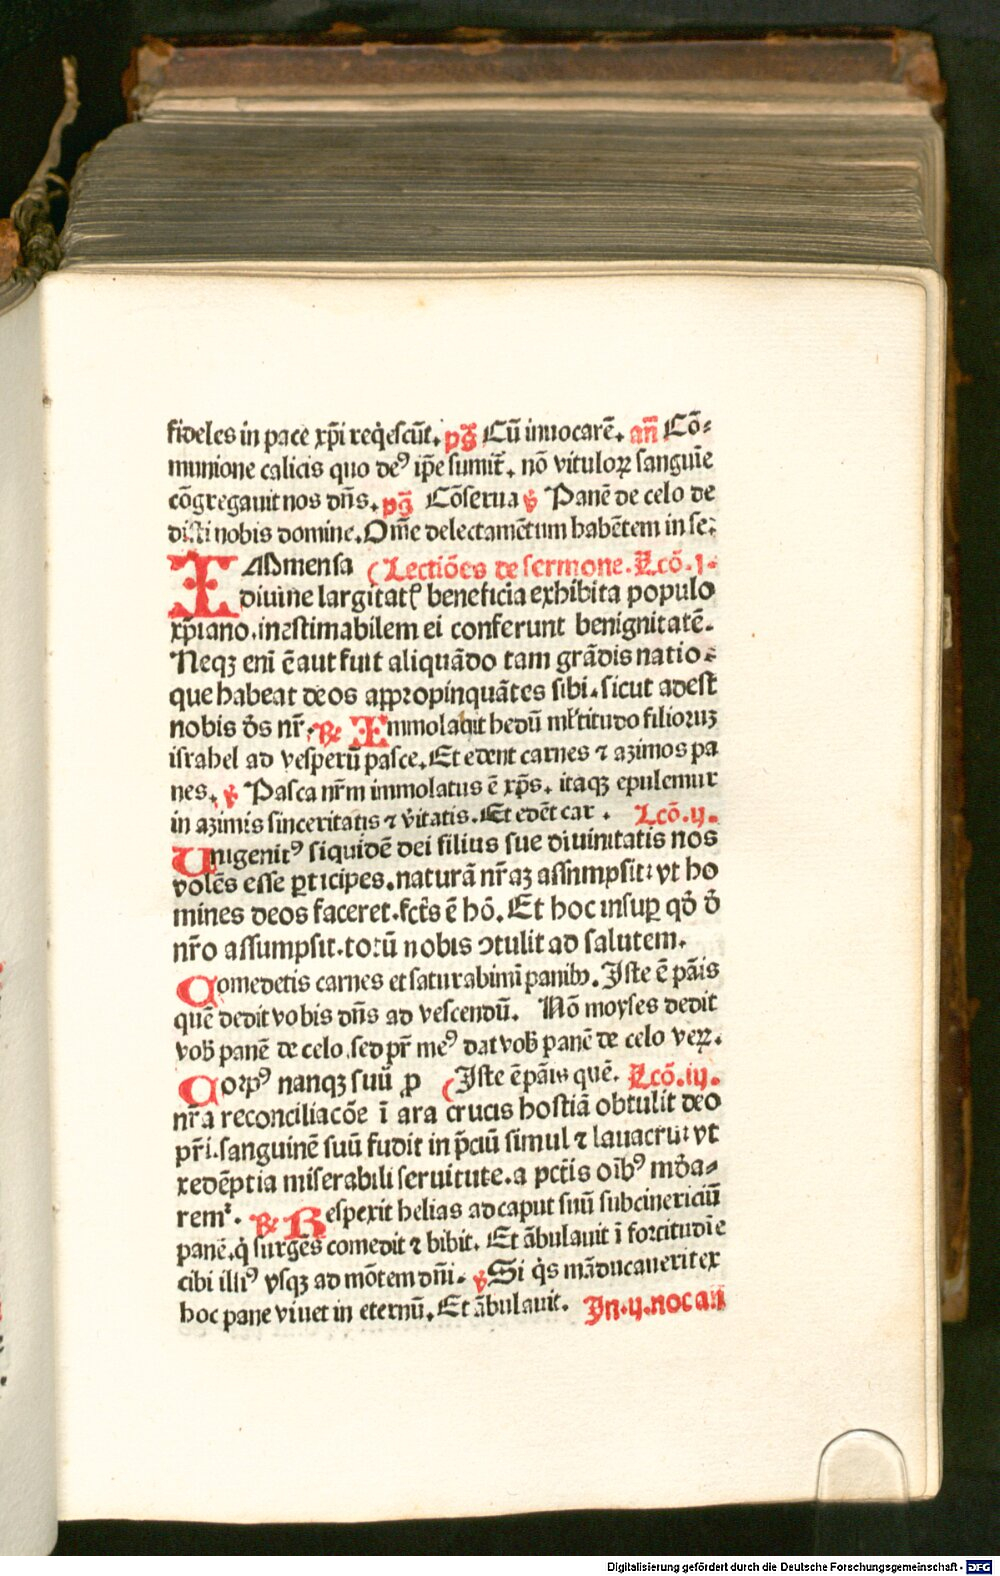 fideles in pace xp̄i reqͥescūt. pͣs̄ Cū inuocarē. an̄ Cō⸗
munione calicis quo deꝰ ip̄e sumit̄. nō vituloꝝ sanguīe
cōgregauit nos dn̄s. pͣs̄ Cōserua ꝟ Panē de celo de
disti nobis domine. Om̄e delectamētum habētem in se⸗
IMmensa (Lectiōes de sermone. Lcō.j.
diuine largitatꝭ beneficia exhibita populo
xp̄iano. inestimabilem ei conferunt benignitatē.
Neqꝫ eni ē aut fuit aliquādo tam grādis natio⸗
que habeat deos appropinquātes sibi. sicut adest
nobis ds̄ nr̄. ℟ Immolabit hedū ml̄titudo filioruꝫ
israhel ad vesperū pasce. Et edent carnes ⁊ azimos pa
nes. ꝟ Pasca nr̄m immolatus ē xp̄s. itaqꝫ epulemur
in azimis sinceritatis ⁊ v̄itatis. Et edēt car . Lcō.ij.
Unigenitꝰ siquidē dei filius sue diuinitatis nos
volēs esse ꝑticipes. naturā nr̄aꝫ assumpsit: vt ho
mines deos faceret. fct̄s ē hō. Et hoc insuꝑ qd̓ d̓
nr̄o assumpsit. totū nobis ↄtulit ad salutem.
Comedetis carnes et saturabimī panibꝰ. Iste ē pāis
quē dedit vobis dn̄s ad vescendū. Nō moyses dedit
vob̄ panē de celo. sed pr̄ meꝰ dat vob̄ panē de celo veꝝ.
Corpꝰ nanqꝫ suū ꝓ (Iste ē pāis quē. Lcō.iij.
nr̄a reconciliacōe ī ara crucis hostiā obtulit deo
pr̄i. sanguinē suū fudit in p̄ciū simul ⁊ lauacrū: vt
redēptia miserabili seruitute. a pct̄is oībꝰ mūda⸗
remᷣ. ℟ Respexit helias ad caput suū subcinericiū
panē. qͥ surgēs comedit ⁊ bibit. Et ābulauit ī fortitudīe
cibi illiꝰ vsqꝫ ad mōtem dn̄i. ꝟ Si qͥs māducauerit ex
hoc pane viuet in eternū. Et ābulauit. In.ij.noc an̄
Digitalisierung gefördert durch die Deutsche Forschungsgemeinschaft - DFG